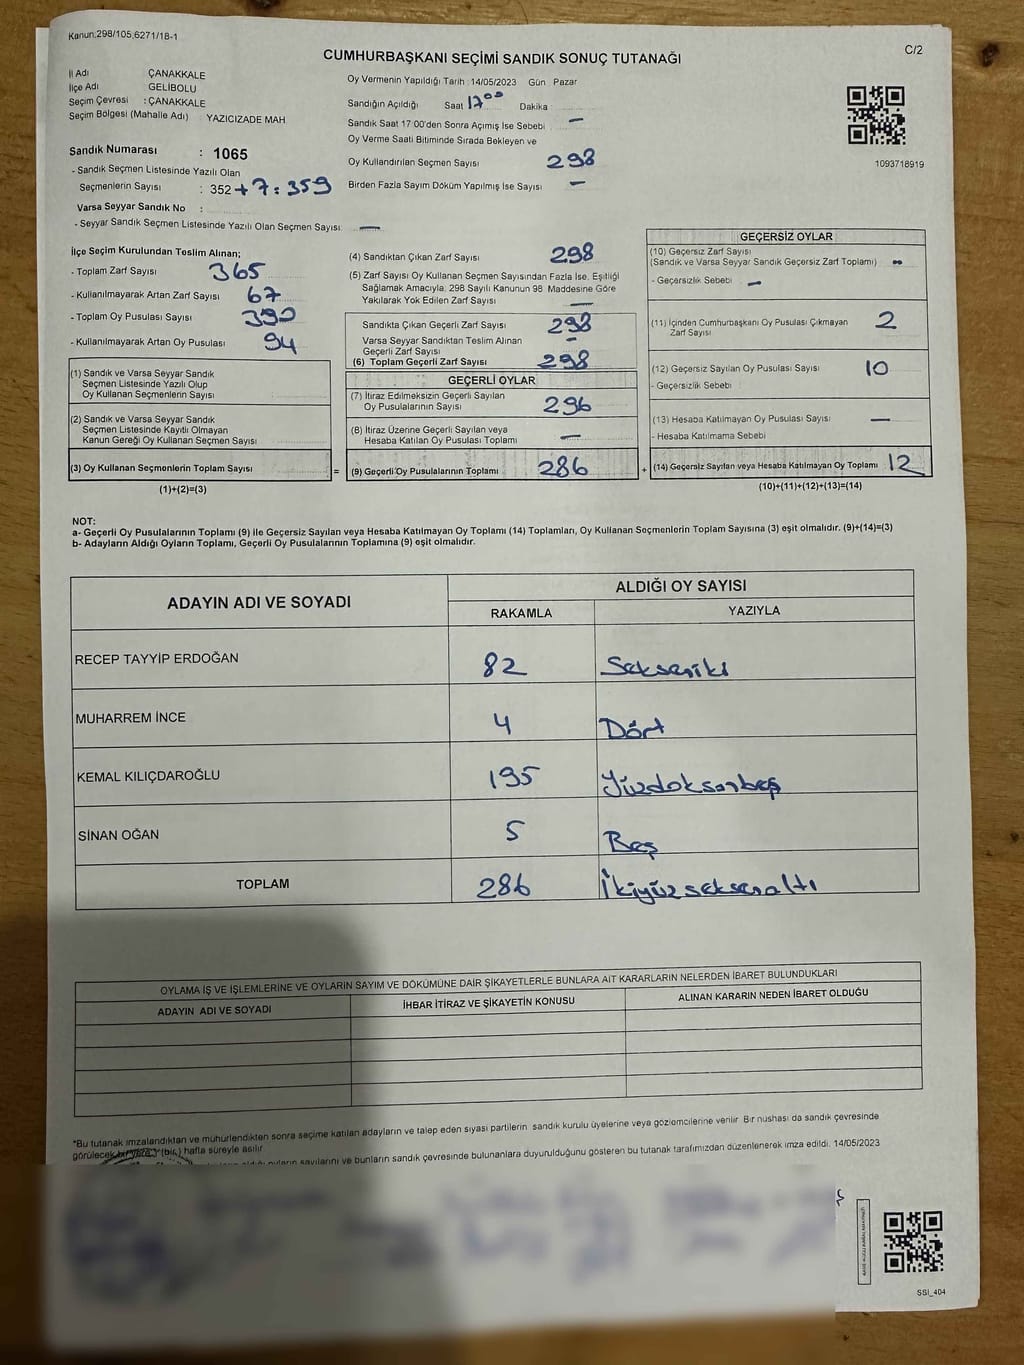 Kanun:298/105,6271/18-1
C/2
CUMHURBAŞKANI SEÇİMİ SANDIK SONUÇ TUTANAĞI
İl Adı ÇANAKKALE
İlçe Adı GELİBOLU
Seçim Çevresi : ÇANAKKALE
Seçim Bölgesi (Mahalle Adı) YAZICIZADE MAH
Sandık Numarası : 1065
- Sandık Seçmen Listesinde Yazılı Olan
Seçmenlerin Sayısı : 352 + 7 : 359
Varsa Seyyar Sandık No :
- Seyyar Sandık Seçmen Listesinde Yazılı Olan Seçmen Sayısı: —
Oy Vermenin Yapıldığı Tarih : 14/05/2023 Gün Pazar
Sandığın Açıldığı Saat 17⁰⁰ Dakika :
Sandık Saat 17:00'den Sonra Açımış İse Sebebi —
Oy Verme Saati Bitiminde Sırada Bekleyen ve
Oy Kullandırılan Seçmen Sayısı 298
Birden Fazla Sayım Döküm Yapılmış İse Sayısı —
1093718919
İlçe Seçim Kurulundan Teslim Alınan;
- Toplam Zarf Sayısı 365
- Kullanılmayarak Artan Zarf Sayısı 67
- Toplam Oy Pusulası Sayısı 390
- Kullanılmayarak Artan Oy Pusulası 94
(1) Sandık ve Varsa Seyyar Sandık
Seçmen Listesinde Yazılı Olup
Oy Kullanan Seçmenlerin Sayısı
(2) Sandık ve Varsa Seyyar Sandık
Seçmen Listesinde Kayıtlı Olmayan
Kanun Gereği Oy Kullanan Seçmen Sayısı
(3) Oy Kullanan Seçmenlerin Toplam Sayısı =
(1)+(2)=(3)
(4) Sandıktan Çıkan Zarf Sayısı 298
(5) Zarf Sayısı Oy Kullanan Seçmen Sayısından Fazla İse, Eşitliği
Sağlamak Amacıyla; 298 Sayılı Kanunun 98 Maddesine Göre
Yakılarak Yok Edilen Zarf Sayısı —
Sandıkta Çıkan Geçerli Zarf Sayısı 298
Varsa Seyyar Sandıktan Teslim Alınan
Geçerli Zarf Sayısı -
(6) Toplam Geçerli Zarf Sayısı 298
GEÇERLİ OYLAR
(7) İtiraz Edilmeksizin Geçerli Sayılan
Oy Pusulalarının Sayısı 296
(8) İtiraz Üzerine Geçerli Sayılan veya
Hesaba Katılan Oy Pusulası Toplamı —
(9) Geçerli Oy Pusulalarının Toplamı 286 +
GEÇERSİZ OYLAR
(10) Geçersiz Zarf Sayısı
(Sandık ve Varsa Seyyar Sandık Geçersiz Zarf Toplamı) —
- Geçersizlik Sebebi —
(11) İçinden Cumhurbaşkanı Oy Pusulası Çıkmayan
Zarf Sayısı 2
(12) Geçersiz Sayılan Oy Pusulası Sayısı 10
- Geçersizlik Sebebi
(13) Hesaba Katılmayan Oy Pusulası Sayısı —
- Hesaba Katılmama Sebebi
(14) Geçersiz Sayılan veya Hesaba Katılmayan Oy Toplamı 12
(10)+(11)+(12)+(13)=(14)
NOT:
a- Geçerli Oy Pusulalarının Toplamı (9) ile Geçersiz Sayılan veya Hesaba Katılmayan Oy Toplamı (14) Toplamları, Oy Kullanan Seçmenlerin Toplam Sayısına (3) eşit olmalıdır. (9)+(14)=(3)
b- Adayların Aldığı Oyların Toplamı, Geçerli Oy Pusulalarının Toplamına (9) eşit olmalıdır.
ADAYIN ADI VE SOYADI ALDIĞI OY SAYISI
RAKAMLA YAZIYLA
RECEP TAYYİP ERDOĞAN 82 Sekseniki
MUHARREM İNCE 4 Dört
KEMAL KILIÇDAROĞLU 195 Yüzdoksanbeş
SİNAN OĞAN 5 Beş
TOPLAM 286 İkiyüzseksenaltı
OYLAMA İŞ VE İŞLEMLERİNE VE OYLARIN SAYIM VE DÖKÜMÜNE DAİR ŞİKAYETLERLE BUNLARA AİT KARARLARIN NELERDEN İBARET BULUNDUKLARI
ADAYIN ADI VE SOYADI İHBAR İTİRAZ VE ŞİKAYETİN KONUSU ALINAN KARARIN NEDEN İBARET OLDUĞU
*Bu tutanak imzalandıktan ve mühürlendikten sonra seçime katılan adayların ve talep eden siyasi partilerin sandık kurulu üyelerine veya gözlemcilerine verilir. Bir nüshası da sandık çevresinde
görülecek bir yere 1 (bir) hafta süreyle asılır.
oyların sayılarını ve bunların sandık çevresinde bulunanlara duyurulduğunu gösteren bu tutanak tarafımızdan düzenlenerek imza edildi. 14/05/2023
SSI_404